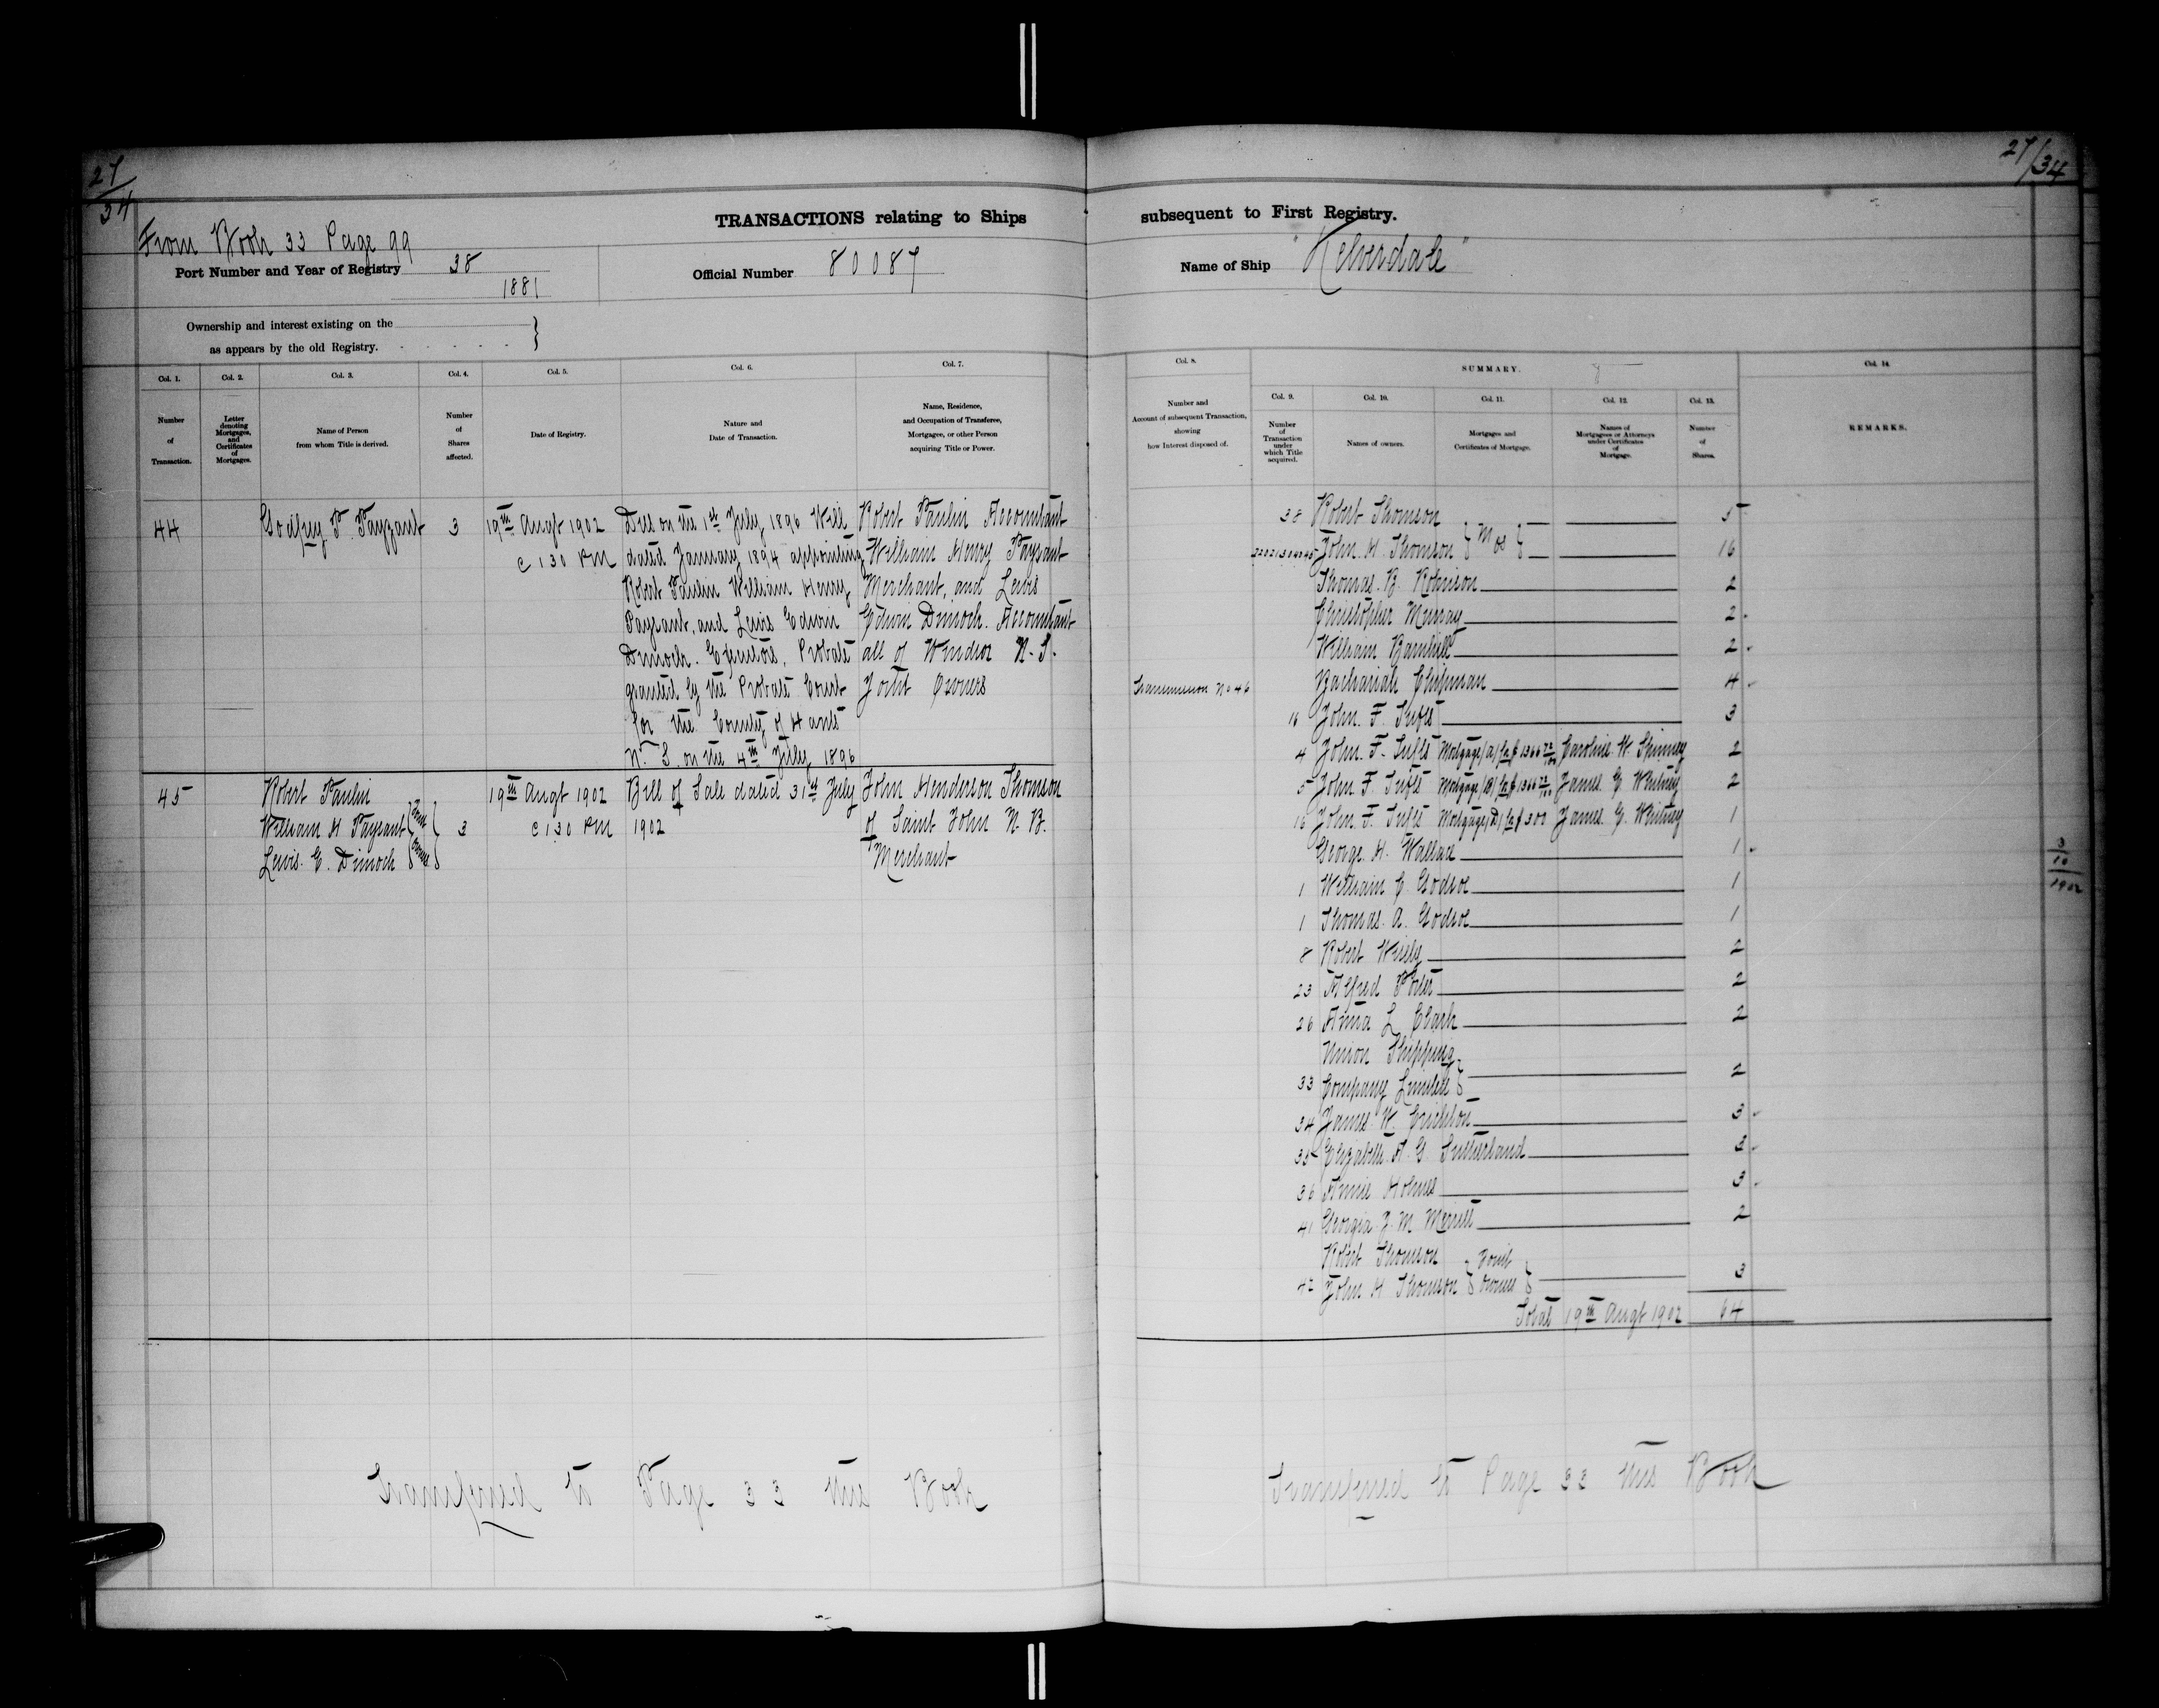 27/34
27/34
From Book 33 Page 99
TRANSACTIONS relating to Ships subsequent to First Registry.
Port Number and Year of Registry 38
1881
Official Number 80087
Name of Ship "Kelverdale"
Ownership and interest existing on the
as appears by the old Registry.
Col. 1.
Number
of
Transaction.
Col. 2.
Letter
denoting
Mortgages,
and
Certificates
of
Mortgages.
Col. 3.
Name of Person
from whom Title is derived.
Col. 4.
Number
of
Shares
affected.
Col. 5.
Date of Registry.
Col. 6.
Nature and
Date of Transaction.
Col. 7.
Name, Residence,
and Occupation of Transferee,
Mortgagee, or other Person
acquiring Title or Power.
44
Godfrey P. Payzant
3
19th Augt 1902
@ 1 30 PM
Died on the 1st July 1896 Will
dated January 1894 appointing
Robert Paulin William Henry
Paysant, and Lewis Edwin
Dimock. Executors, Probate
granted by the Probate Court
for the County of Hants
N. S. on the 4th July 1896
Robert Paulin Accountant
William Henry Paysant
Merchant, and Lewis
Edwin Dimock. Accountant
all of Windsor N. S.
Joint Owners
45
Robert Paulin
William H Paysant
Lewis. E. Dimock
Joint
Owners
3
19th Augt 1902
@ 1 30 PM
Bill of Sale dated 31st July
1902
John Henderson Thomson
of Saint John N. B.
Merchant
Transferred to Page 33 this Book
Col. 8.
Number and
Account of subsequent Transaction,
showing
how Interest disposed of.
SUMMARY.
Col. 9.
Number
of
Transaction
under
which Title
acquired.
Col. 10.
Names of owners.
Col. 11.
Mortgages and
Certificates of Mortgage.
Col. 12.
Names of
Mortgagees or Attorneys
under Certificates
of
Mortgage.
Col. 13.
Number
of
Shares.
Col. 14.
REMARKS.
38 Robert Thomson 5
John. H. Thomson 16
Thomas. B. Robinson 2
Christopher Murray 2
William Barnhill 2
Transmission No 46 Zachariah Chipman 4
16 John. F. Tufts 3
4 John. F. Tufts Mortgage (A) for $ 1366 72/100 Caroline. W. Skinney 2
5 John. F. Tufts Mortgage (B) for $ 1366 72/100 James. G. Whitney 2
16 John. F. Tufts Mortgage (D) for $ 300 James. G. Whitney 1
George. H. Wallace 1
1 William C. Godsoe 1
1 Thomas. A. Godsoe 1
8 Robert Wisely 2
23 Alfred Porter 2
26 Anna L Clark 2
Union Shipping
33 Company Limited 2
34 James. W. Crichton 3
35 Elizabeth. A. G. Sutherland 3
36 Annie Holmes 3
41 Georgia J. M. Merritt 2
Robert Thomson
42 John H Thomson Joint Owners 3
Total 19th Augt 1902 64
3/10/1902
Transferred to Page 33 this Book